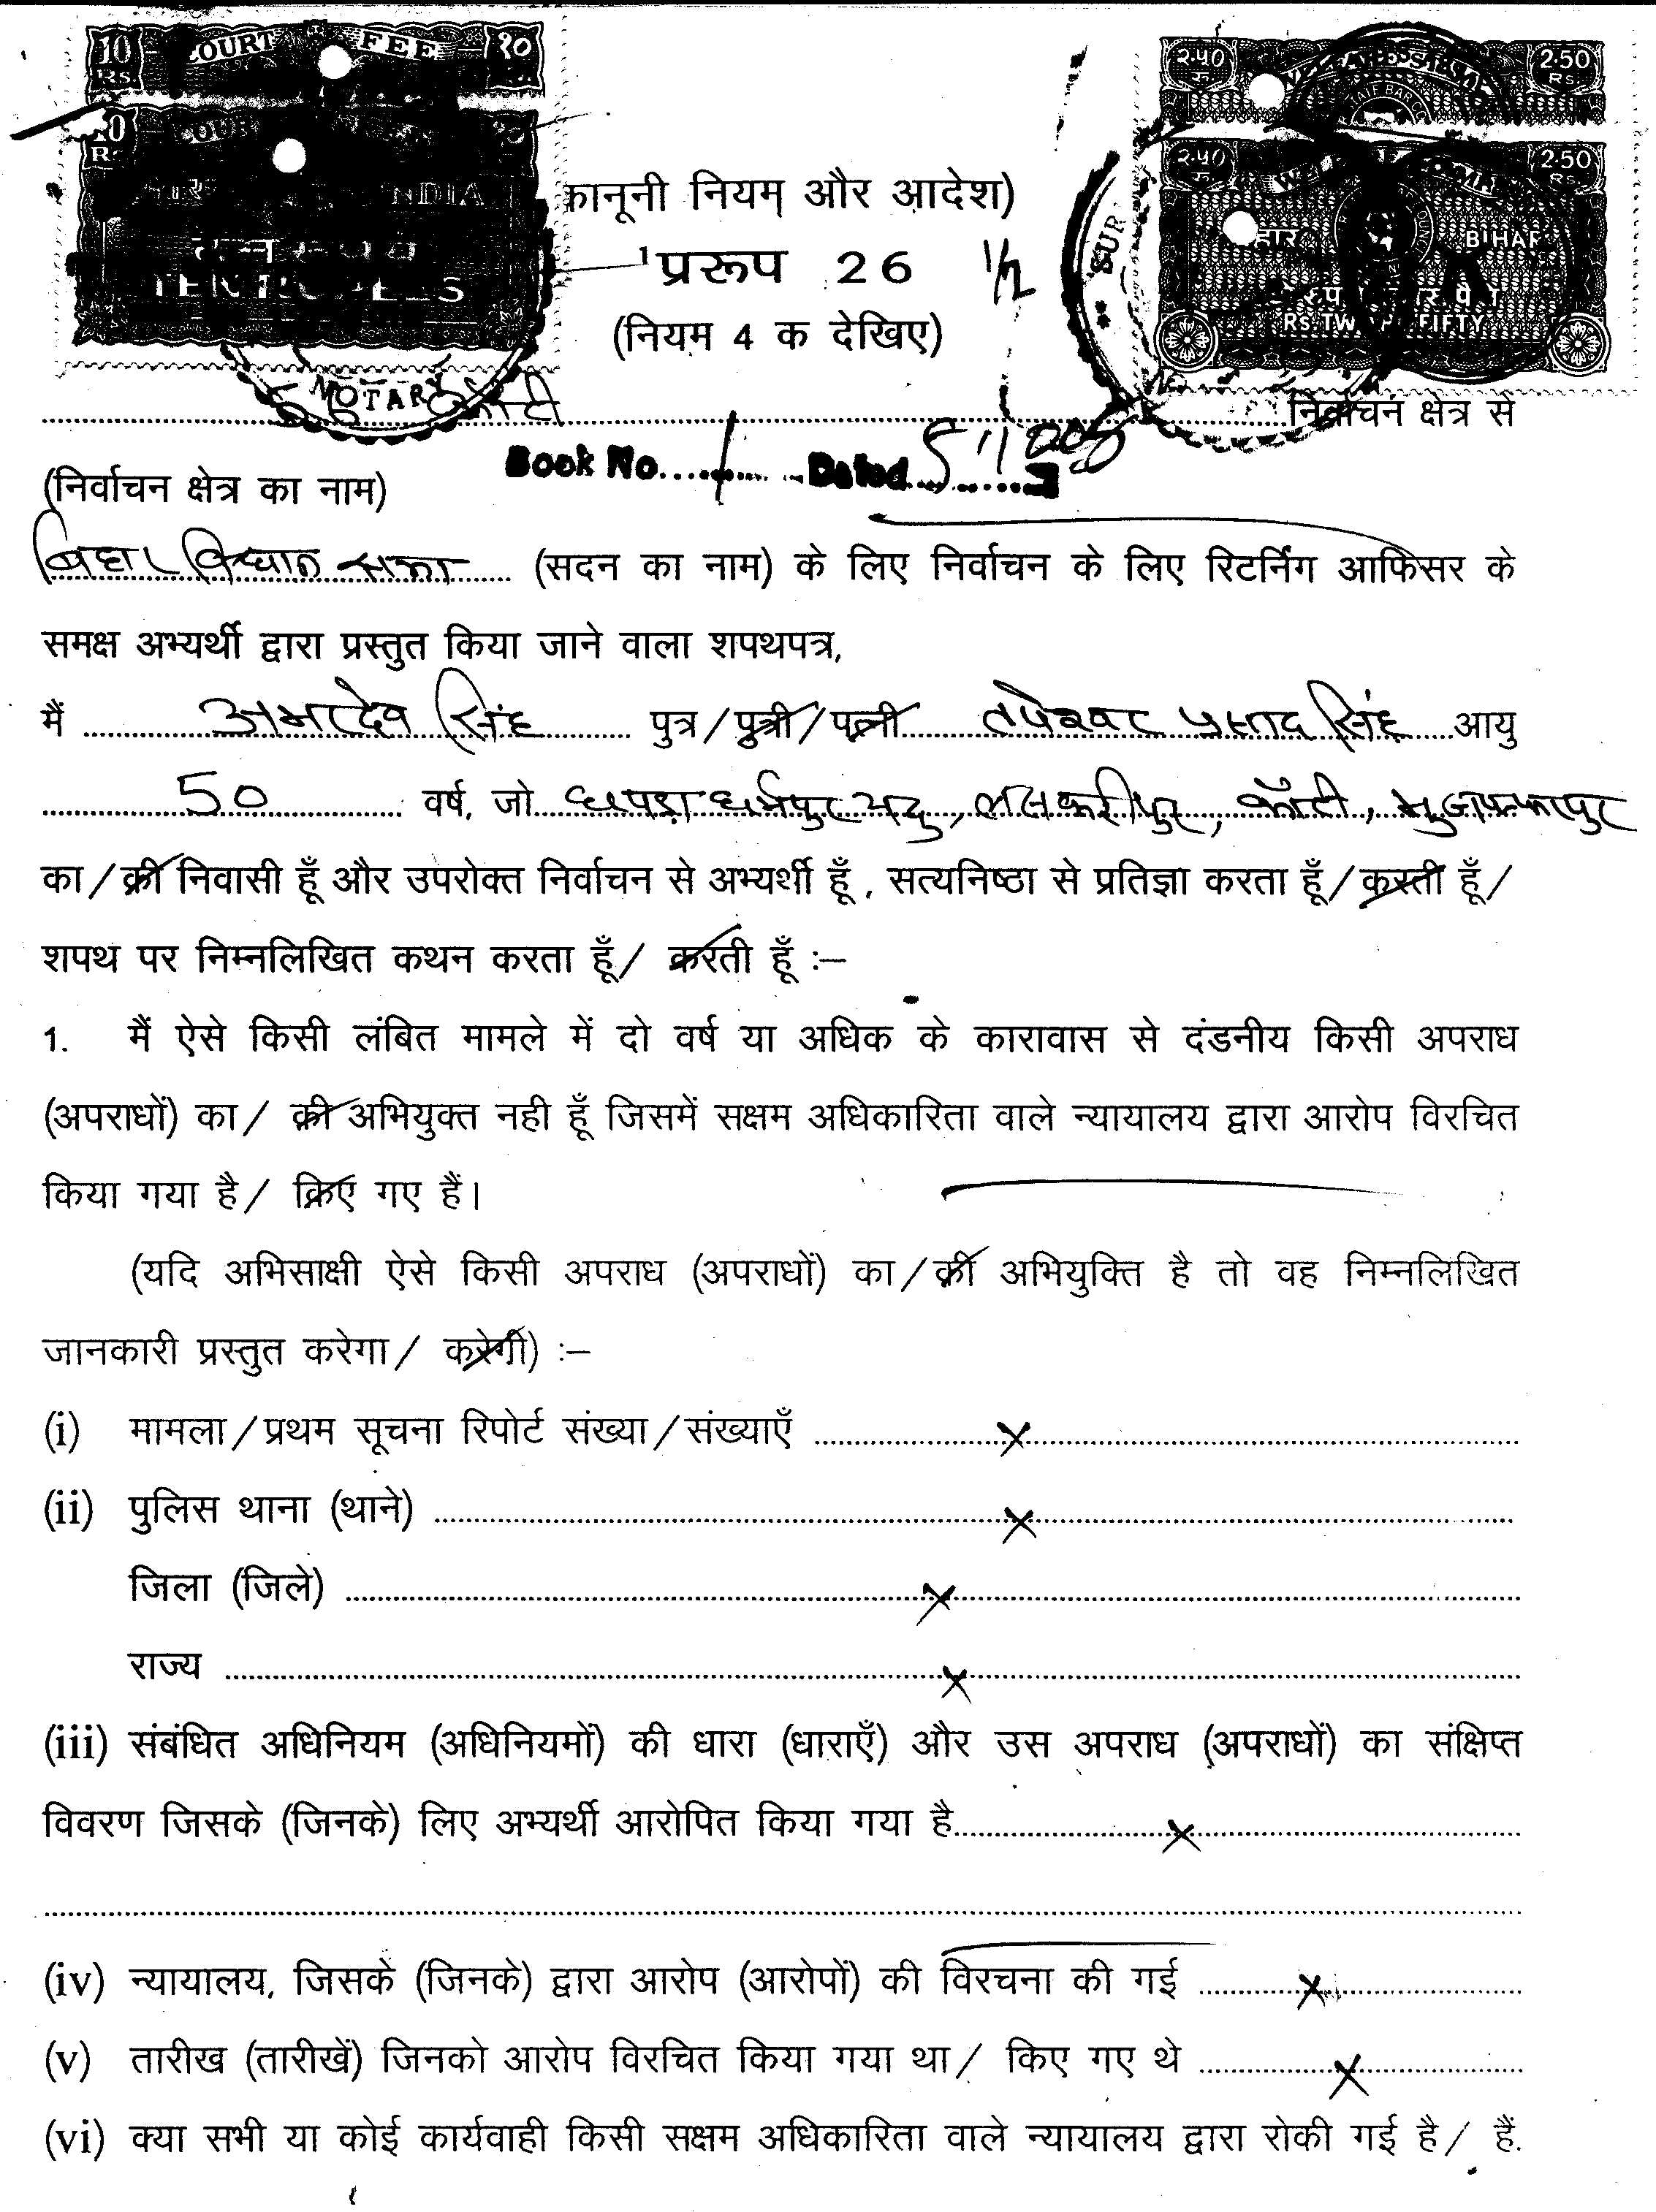 10 COURT FEE १०
Rs.
२.५० 2.50
रु. RS
२.५० 2.50
रु. RS.
INDIA
BIHAR
RS. TW FIFTY
कानूनी नियम और आदेश)
¹प्ररूप 26 1/2
(नियम 4 क देखिए)
NOTARY
काँटी निर्वाचन क्षेत्र से
Book No. 1 Dated 5
(निर्वाचन क्षेत्र का नाम)
बिहार विधान सभा (सदन का नाम) के लिए निर्वाचन के लिए रिटर्निंग आफिसर के
समक्ष अभ्यर्थी द्वारा प्रस्तुत किया जाने वाला शपथपत्र,
मैं सिंह पुत्र/पुत्री/पत्नी तपेश्वर प्रसाद सिंह आयु
50 वर्ष, जो धर्मपुर काँटी, मुजफ्फरपुर
का/की निवासी हूँ और उपरोक्त निर्वाचन से अभ्यर्थी हूँ, सत्यनिष्ठा से प्रतिज्ञा करता हूँ/करती हूँ/
शपथ पर निम्नलिखित कथन करता हूँ/ करती हूँ :–
1. मैं ऐसे किसी लंबित मामले में दो वर्ष या अधिक के कारावास से दंडनीय किसी अपराध
(अपराधों) का/ की अभियुक्त नही हूँ जिसमें सक्षम अधिकारिता वाले न्यायालय द्वारा आरोप विरचित
किया गया है/ किए गए हैं।
(यदि अभिसाक्षी ऐसे किसी अपराध (अपराधों) का/की अभियुक्ति है तो वह निम्नलिखित
जानकारी प्रस्तुत करेगा/ करेगी) :–
(i) मामला/प्रथम सूचना रिपोर्ट संख्या/संख्याएँ ..... x .....
(ii) पुलिस थाना (थाने) ..... x .....
जिला (जिले) ..... x .....
राज्य ..... x .....
(iii) संबंधित अधिनियम (अधिनियमों) की धारा (धाराएँ) और उस अपराध (अपराधों) का संक्षिप्त
विवरण जिसके (जिनके) लिए अभ्यर्थी आरोपित किया गया है..... x .....
(iv) न्यायालय, जिसके (जिनके) द्वारा आरोप (आरोपों) की विरचना की गई ..... x .....
(v) तारीख (तारीखें) जिनको आरोप विरचित किया गया था/ किए गए थे ..... x .....
(vi) क्या सभी या कोई कार्यवाही किसी सक्षम अधिकारिता वाले न्यायालय द्वारा रोकी गई है/ हैं.